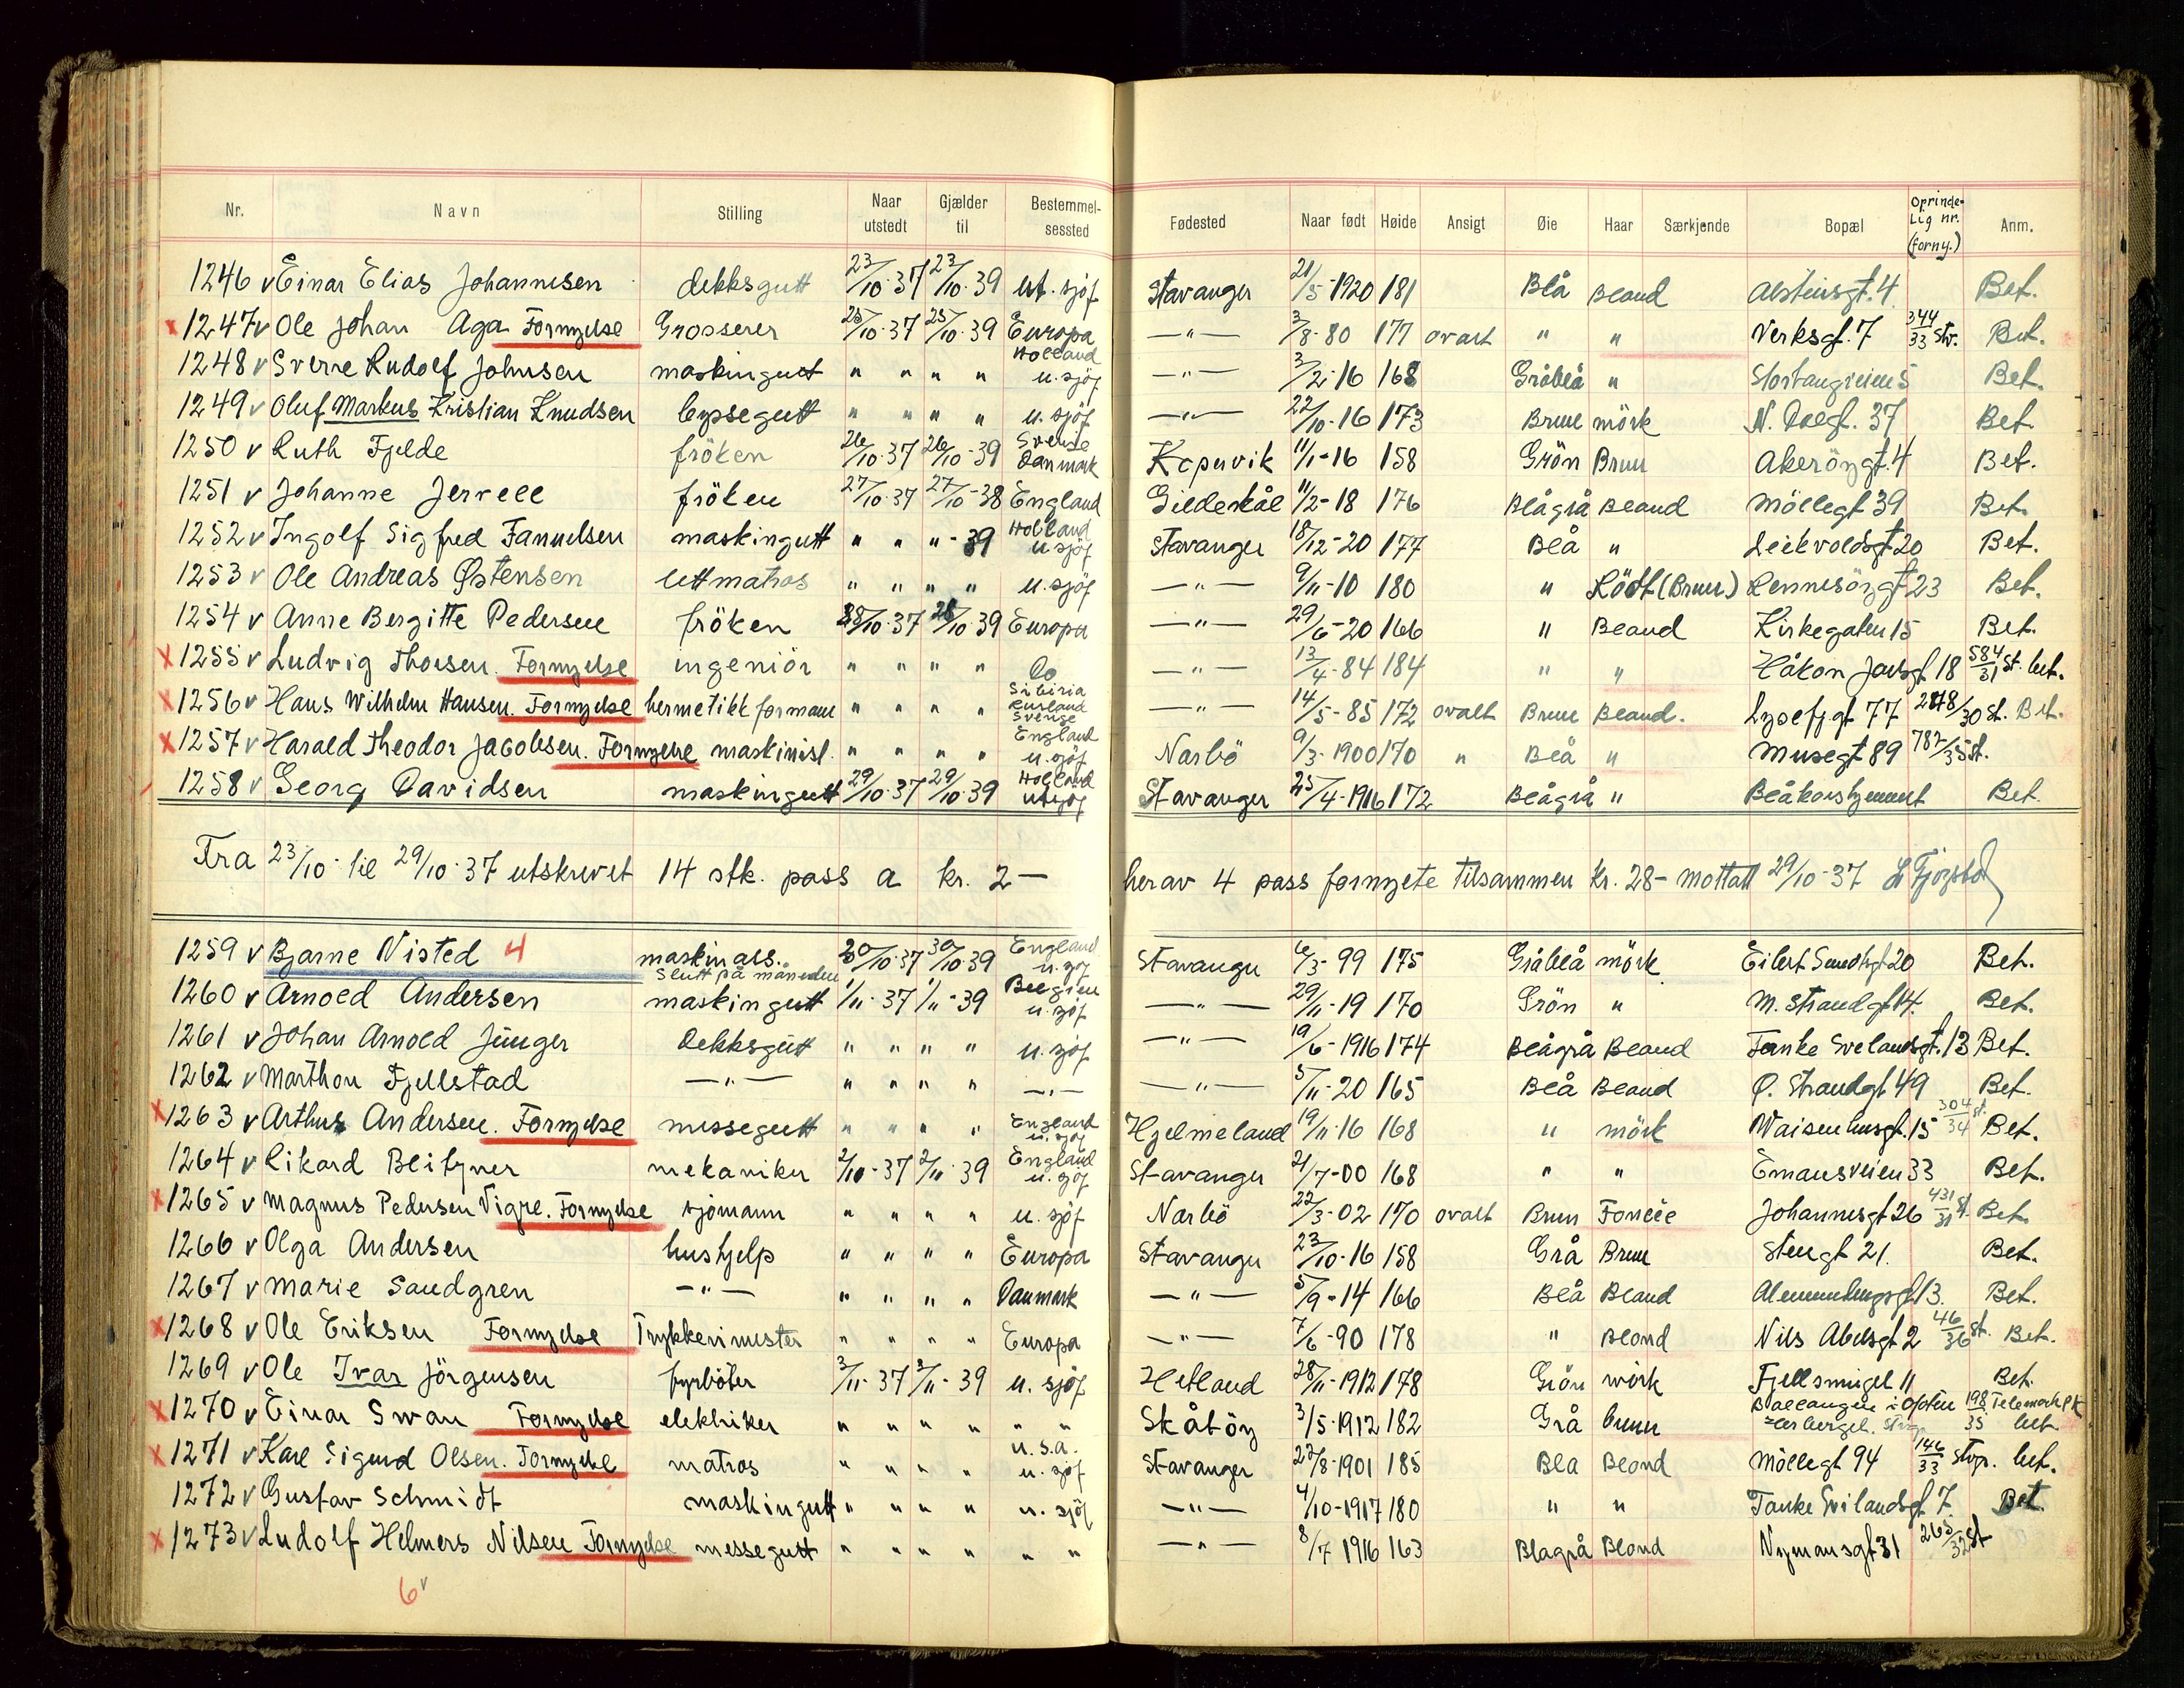 Nr. Navn Stilling Naar utstedt Gjælder til Bestemmel-sessted Fødested Naar født Høide Ansigt Øie Haar Særkjende Bopæl Oprinde-lig nr. (forny.) Anm.
1246 v Einar Elias Johannesen dekksgutt 23/10-37 23/10-39 ut. sjöf Stavanger 21/5-1920 181 Blå Blond 4 Bet.
x 1247 v Ole Johan Aga Fornyelse Grosserer 25/10-37 25/10-39 Europa —"— 3/8-80 177 ovalt " " Verksgt. 7 344/33 Stv. Bet.
1248 v Sverre Rudolf Johnsen maskingutt " " " " Holland u. sjöf —"— 3/2-16 168 Gråblå " Bet.
1249 v Oluf Markus Kristian Knudsen byssegutt " " " " u. sjöf —"— 22/10-16 173 Brun mörk N. 37 Bet.
1250 v Ruth Fjelde fröken 26/10-37 26/10-39 Sverige Danmark Kopervik 11/1-16 158 Grön Brun Akeröygt. 4 Bet.
1251 v Johanne Jervell fröken 27/10-37 27/10-38 England Gildeskål 11/2-18 176 Blågrå Blond Möllegt 39 Bet.
1252 v Ingolf Sigfred Fanuelsen maskingutt " " " -39 Holland u sjöf Stavanger 18/12-20 177 Blå " 20 Bet.
1253 v Ole Andreas Østensen lettmatros " " " " u. sjöf —"— 9/11-10 180 " Rödt (Brun) Rennesöygt 23 Bet.
1254 v Anne Bergitte Pedersen fröken 28/10-37 28/10-39 Europa —"— 29/6-20 166 " Blond Kirkegaten 15 Bet.
x 1255 v Ludvig Thorsen. Fornyelse ingeniör " " " " Do —"— 13/4-84 184 " " Håkon Jarlsgt 18 584/31 St. bet.
x 1256 v Hans Wilhelm Hansen. Fornyelse hermetikk formann " " " " Sibiria Rusland Sverige —"— 14/5-85 172 ovalt Brun Blond. Lysefjgt 77 30 St. Bet.
x 1257 v Harald Theodor Jacobsen. Fornyelse maskinist. " " " " England u. sjöf Narbö 9/3-1900 170 " Blå " Musegt 89 782/35 St.
1258 v Georg Davidsen maskingutt 29/10-37 29/10-39 Holland utsjöf Stavanger 25/4-1916 172 Blågrå " Bet.
Fra 23/10- til 29/10-37 utskrevet 14 stk. pass a kr. 2— herav 4 pass fornyete tilsammen kr. 28- mottatt 29/10-37
1259 v Bjarne Nisted 4 maskinass. 30/10-37 30/10-39 England u. sjöf Stavanger 6/3-99 175 Gråblå mörk 20 Bet.
Slutt på måneden
1260 v Arnold Andersen maskingutt 1/11-37 1/11-39 Belgien u. sjöf —"— 29/11-19 170 Grön " M. Strandgt 14. Bet.
1261 v Johan Arnold Jünger Dekksgutt " " " " u. sjöf —"— 19/6-1916 174 Blågrå Blond Tanke Svelandsgt. 13 Bet.
1262 v Marthon Fjellstad —"— " " " " —"— —"— 5/11-20 165 Blå Blond Ø. Strandgt 49 Bet.
x 1263 v Arthur Andersen. Fornyelse messegutt " " " " England u. sjöf Hjelmeland 19/11-16 168 " mörk Waisenhusgt. 15 304/34 St. Bet.
1264 v Rikard Blitzner mekaniker 2/10-37 2/11-39 England u. sjöf Stavanger 21/7-00 168 " " Emausveien 33 Bet.
x 1265 v Magnus Pedersen Vigre. Fornyelse sjömann " " " " u. sjöf Narbö 22/3-02 170 ovalt Brun Johannesgt 26 431/31 St. Bet.
1266 v Olga Andersen hushjelp " " " " Europa Stavanger 23/10-16 158 Grå Brun Stengt 21. Bet.
1267 v Marie Sandgren —"— " " " " Danmark —"— 5/9-14 166 Blå Blond 13. Bet.
x 1268 v Ole Eriksen Fornyelse Trykkerimester " " " " Europa —"— 7/6-90 178 " Blond Nils Abelsgt 2 46/36 St. Bet.
1269 v Ole Ivar Jörgensen fyrböter 3/11-37 3/11-39 u. sjöf Hetland 28/11-1912 178 Grön mörk Fjellsmuget 11 Bet.
x 1270 v Einar Swan Fornyelse elektriker " " " " " " Skåtöy 3/5-1912 182 Grå brun Ballangen i Ofoten 198/35 Telemark PK bet.
x 1271 v Karl Sigurd Olsen. Fornyelse matros " " " " U.S.A. u. sjöf Stavanger 27/8-1901 185 Blå Blond Möllegt 94 146/33 Stvgr. bet.
1272 v Gustav Schmidt maskingutt " " " " u. sjöf —"— 4/10-1917 180 " " Tanke Svilandsgt 7. Bet
x 1273 v Ludolf Helmers Nilsen Fornyelse messegutt " " " " " " —"— 8/7 1916 163 Blågrå Blond Nymansgt 31 265/32 St
6 v